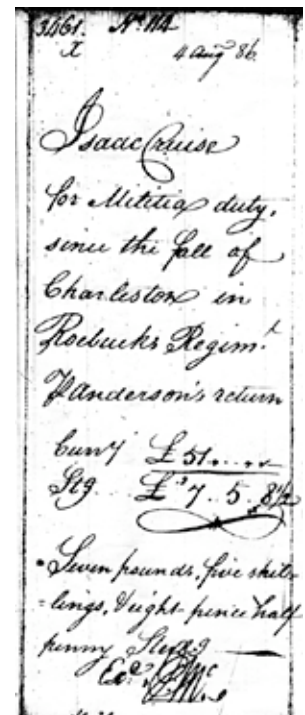 3461. No. 114
X 4 Aug 86.
Isaac Cruise
for Militia duty,
since the fall of
Charleston in
Roebucks Regimt.
P Anderson's return
Curry £ 51 .. " .. "
Stg £ 7 .. 5 .. 8 1/2
Seven pounds, five shil-
-lings, & eight pence half
penny Sterlg
Exd.